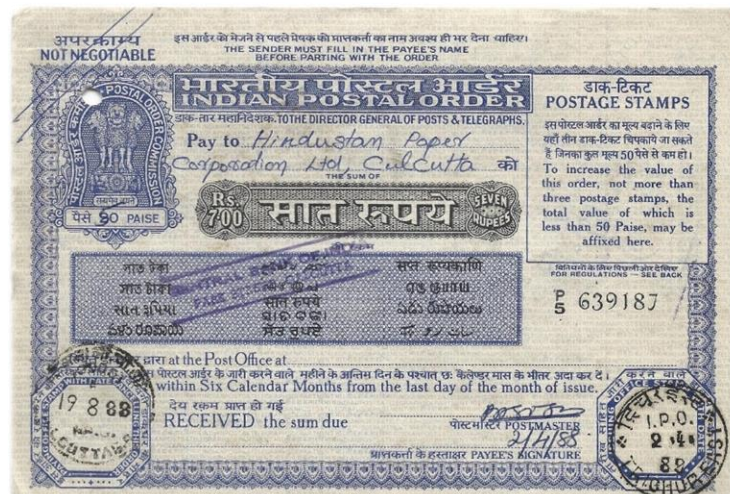 अपरक्राम्य
NOT NEGOTIABLE
इस आर्डर को भेजने से पहले प्रेषक को प्राप्तकर्ता का नाम अवश्य ही भर देना चाहिए।
THE SENDER MUST FILL IN THE PAYEE'S NAME
BEFORE PARTING WITH THE ORDER
भारतीय पोस्टल आर्डर
INDIAN POSTAL ORDER
डाक-तार महानिदेशक. TO THE DIRECTOR GENERAL OF POSTS & TELEGRAPHS.
POSTAL ORDER COMMISSION
सत्यमेव जयते
पैसे 50 PAISE
Pay to Hindustan Paper
Corporation Ltd, Culcutta को
THE SUM OF
Rs. 7.00 सात रुपये SEVEN RUPEES
डाक-टिकट
POSTAGE STAMPS
इस पोस्टल आर्डर का मूल्य बढ़ाने के लिए
यहाँ तीन डाक-टिकट चिपकाये जा सकते
हैं जिनका कुल मूल्य 50 पैसे से कम हो।
To increase the value of
this order, not more than
three postage stamps, the
total value of which is
less than 50 Paise, may be
affixed here.
विनियमों के लिए पिछली ओर देखिए
FOR REGULATIONS — SEE BACK
P/5 639187
की रकम
CENTRAL BANK OF
সাত টাকা
सप्त रूप्यकाणि
सात रुपये
ਸੱਤ ਰੁਪਏ
ఏడు రూపాయలు
द्वारा at the Post Office at
पोस्टल आर्डर के जारी करने वाले महीने के अन्तिम दिन के पश्चात् छः कैलेण्डर मास के भीतर अदा कर दें।
within Six Calendar Months from the last day of the month of issue.
देय रक़म प्राप्त हो गई
RECEIVED the sum due
पोस्टमास्टर POSTMASTER
2/4/88
प्राप्तकर्ता के हस्ताक्षर PAYEE'S SIGNATURE
19 8 88
I.P.O.
2 4
88